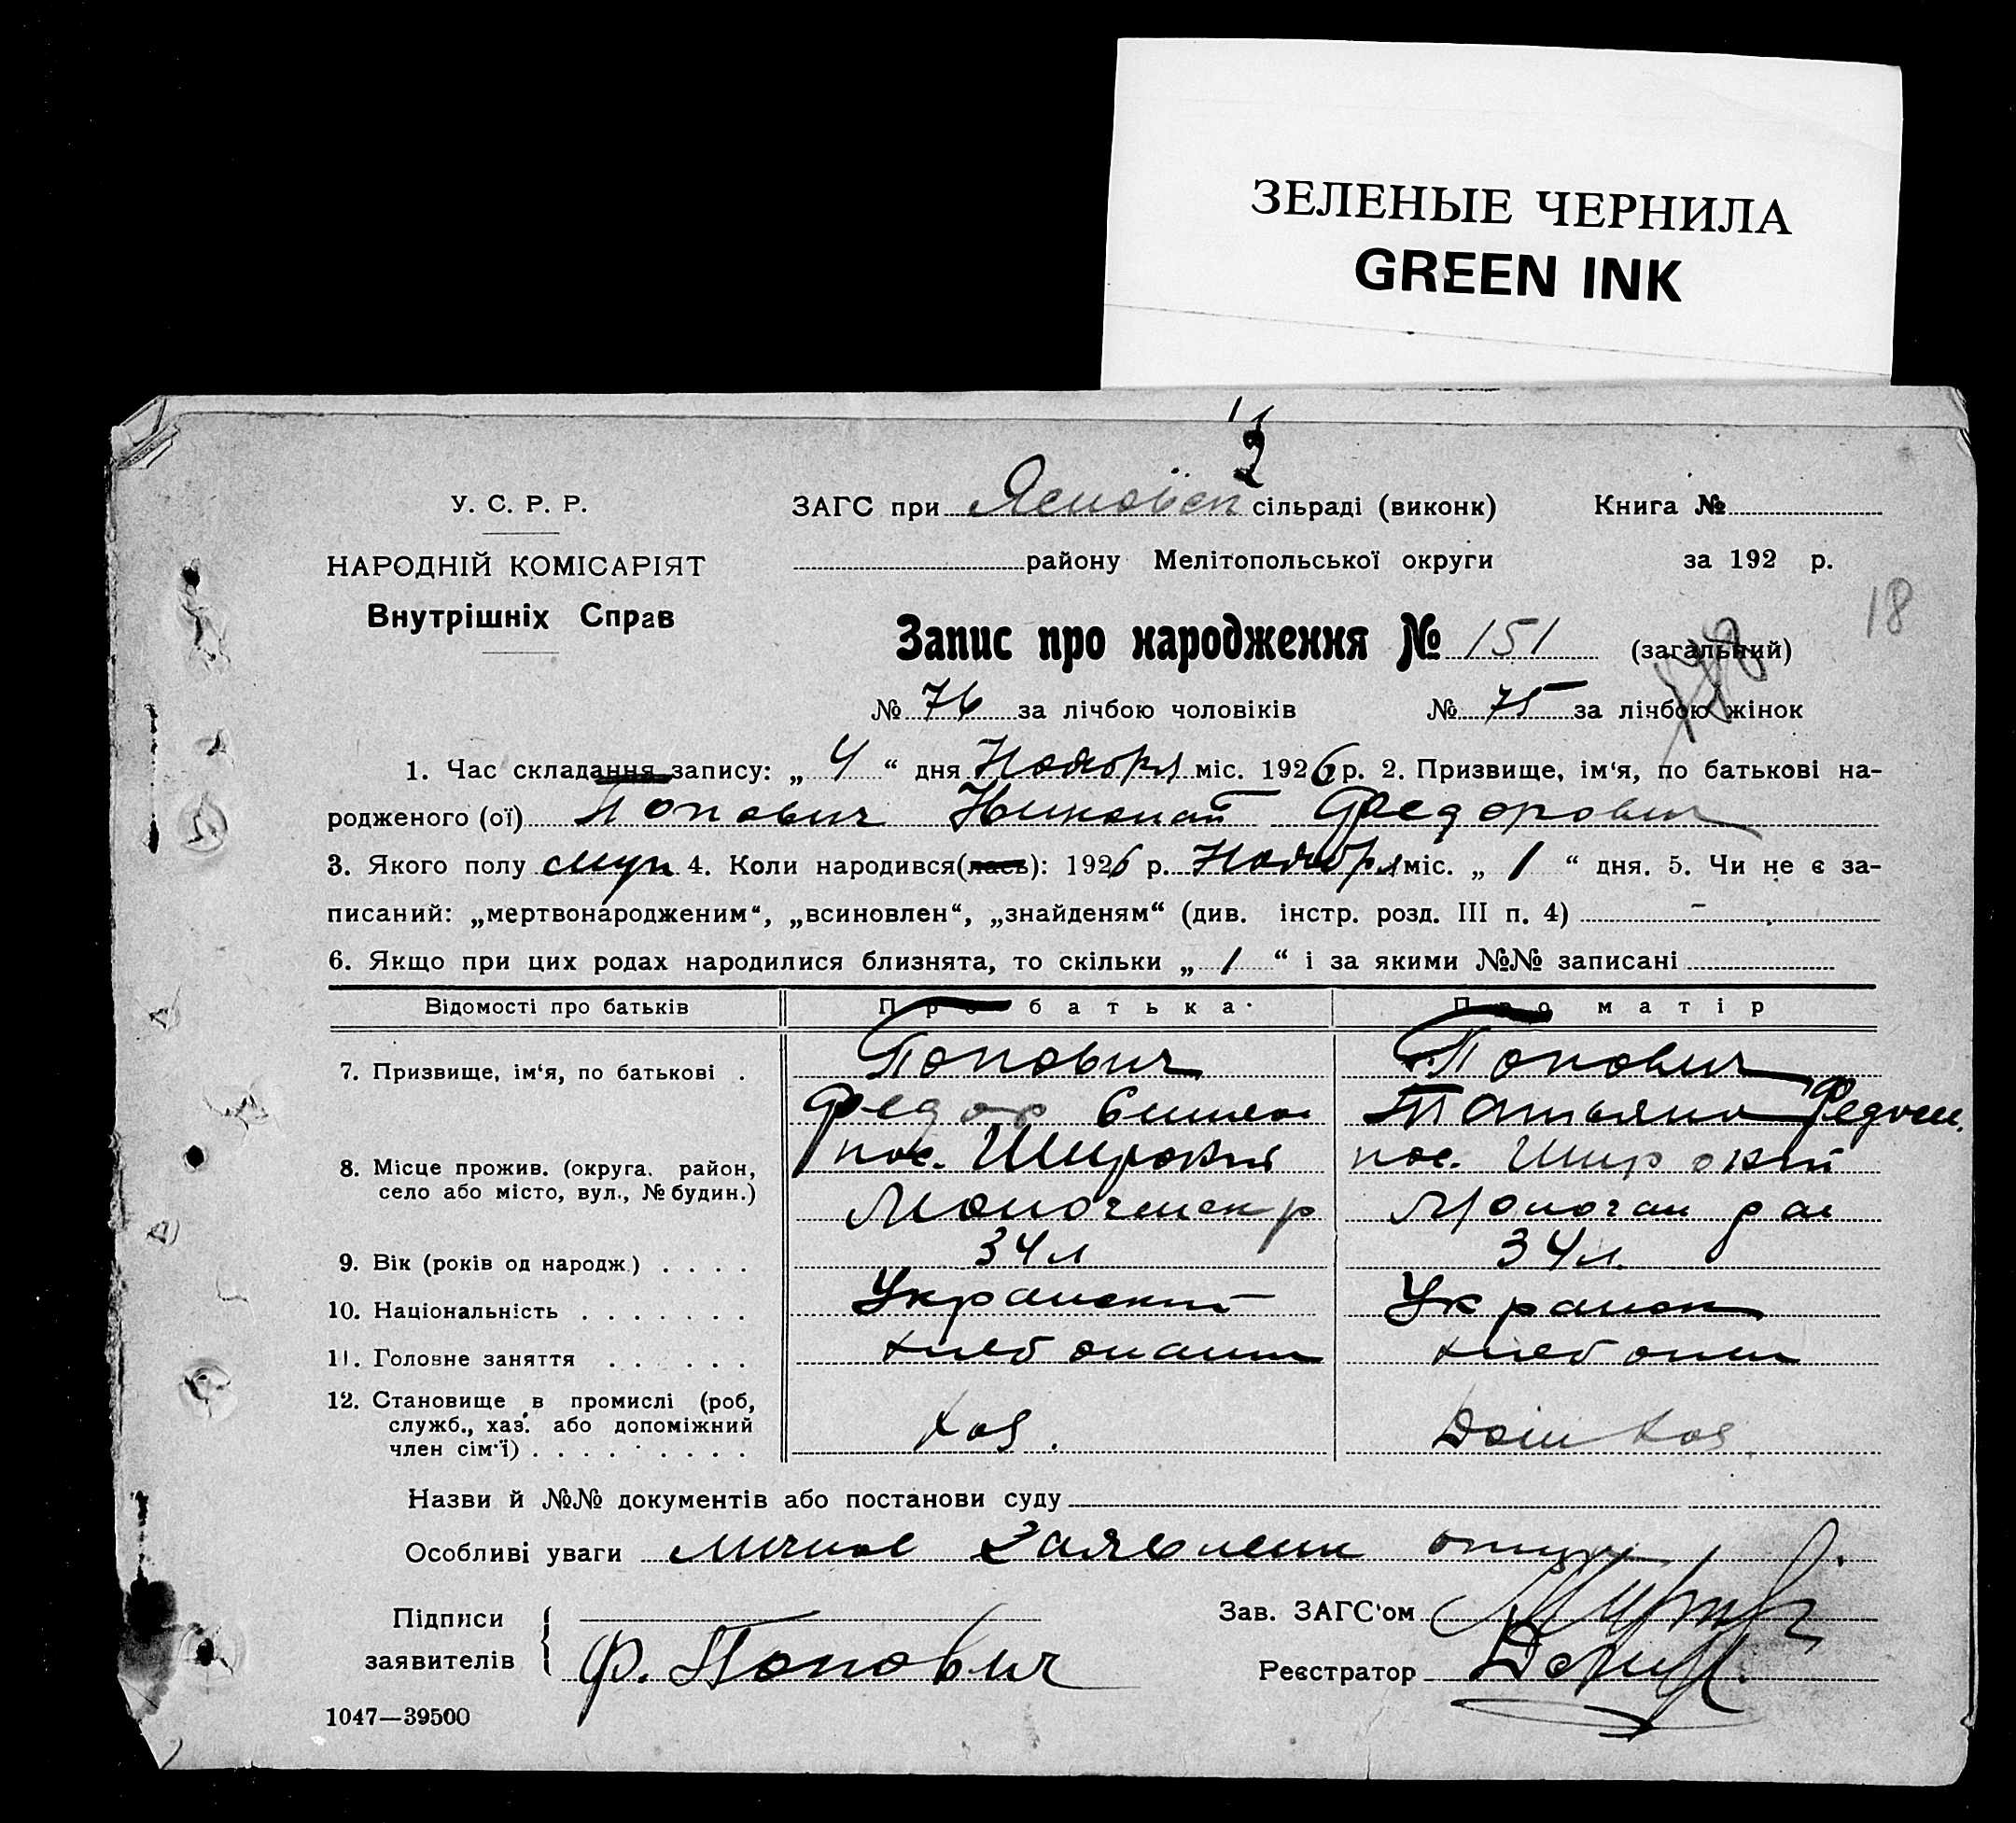 ЗЕЛЕНЫЕ ЧЕРНИЛА
GREEN INK
У. С. Р. Р.
ЗАГС при сільраді (виконк)
Книга №
НАРОДНІЙ КОМІСАРІЯТ
району Мелітопольської округи
за 192 р.
Внутрішніх Справ
18
Запис про народження № 151 (загальний)
№ 76 за лічбою чоловіків № 75 за лічбою жінок
1. Час складання запису: „ 4 “ дня Ноября міс. 1926 р. 2. Призвище, ім‘я, по батькові на-
родженого (ої) Попович Николай Федорович
3. Якого полу муж 4. Коли народився(лась): 1926 р. Ноября міс. „ 1 “ дня. 5. Чи не є за-
писаний: „мертвонародженим“, „всиновлен“, „знайденям“ (див. інстр. розд. III п. 4) -
6. Якщо при цих родах народилися близнята, то скільки „ 1 “ і за якими №№ записані
Відомості про батьків
Про батька
Про матір
7. Призвище, ім‘я, по батькові .
Попович
Попович
Федор
Татьяна Федос.
8. Місце прожив. (округа, район,
село або місто, вул., № будин.)
пос. Широкий
пос. Широкий
9. Вік (років од народж.) . . . .
34 л
34 л.
10. Національність . . . . . . .
Украинский
Украин
11. Головне заняття . . . . . .
хлебопаш
хлебопаш
12. Становище в промислі (роб,
служб., хаз. або допоміжний
член сім‘ї) . . . . . . . . .
хоз.
Дом хоз.
Назви й №№ документів або постанови суду
Особливі уваги личное заявлени отца
Підписи
заявителів
Ф. Попович
Зав. ЗАГС‘ом
Реєстратор
1047—39500